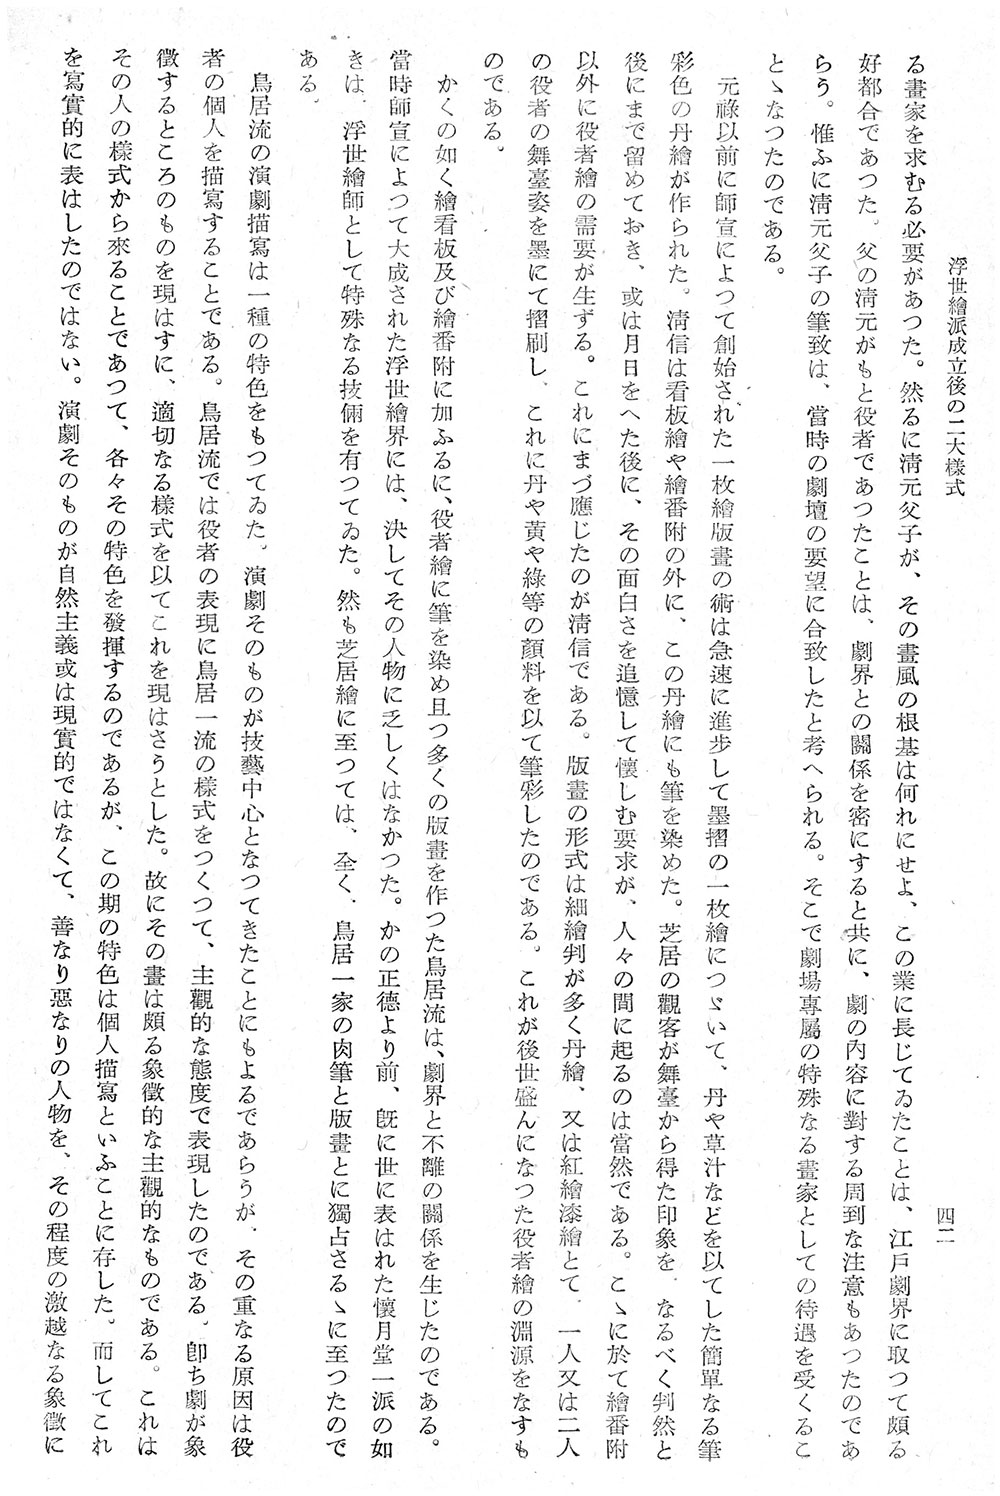 浮世繪派成立後の二大樣式
四二
る畫家を求むる必要があつた。然るに淸元父子が、その畫風の根基は何れにせよ、この業に長じてゐたことは、江戸劇界に取つて頗る
好都合であつた。父の淸元がもと役者であつたことは、劇界との關係を密にすると共に、劇の內容に對する周到な注意もあつたのであ
らう。惟ふに淸元父子の筆致は、當時の劇壇の要望に合致したと考へられる。そこで劇場專屬の特殊なる畫家としての待遇を受くるこ
とゝなつたのである。
元祿以前に師宣によつて創始された一枚繪版畫の術は急速に進步して墨摺の一枚繪につゞいて、丹や草汁などを以てした簡單なる筆
彩色の丹繪が作られた。淸信は看板繪や繪番附の外に、この丹繪にも筆を染めた。芝居の觀客が舞臺から得た印象を、なるべく判然と
後にまで留めておき、或は月日をへた後に、その面白さを追憶して懷しむ要求が、人々の間に起るのは當然である。こゝに於て繪番附
以外に役者繪の需要が生ずる。これにまづ應じたのが淸信である。版畫の形式は細繪判が多く丹繪、又は紅繪漆繪とて、一人又は二人
の役者の舞臺姿を墨にて摺刷し、これに丹や黃や綠等の顏料を以て筆彩したのである。これが後世盛んになつた役者繪の淵源をなすも
のである。
かくの如く繪看板及び繪番附に加ふるに、役者繪に筆を染め且つ多くの版畫を作つた鳥居流は、劇界と不離の關係を生じたのである。
當時師宣によつて大成された浮世繪界には、決してその人物に乏しくはなかつた。かの正德より前、旣に世に表はれた懷月堂一派の如
きは、浮世繪師として特殊なる技倆を有つてゐた。然も芝居繪に至つては、全く、鳥居一家の肉筆と版畫とに獨占さるゝに至つたので
ある。
鳥居流の演劇描寫は一種の特色をもつてゐた。演劇そのものが技藝中心となつてきたことにもよるであらうが、その重なる原因は役
者の個人を描寫することである。鳥居流では役者の表現に鳥居一流の樣式をつくつて、主觀的な態度で表現したのである。卽ち劇が象
徵するところのものを現はすに、適切なる樣式を以てこれを現はさうとした。故にその畫は頗る象徵的な主觀的なものである。これは
その人の樣式から來ることであつて、各々その特色を發揮するのであるが、この期の特色は個人描寫といふことに存した。而してこれ
を寫實的に表はしたのではない。演劇そのものが自然主義或は現實的ではなくて、善なり惡なりの人物を、その程度の激越なる象徵に